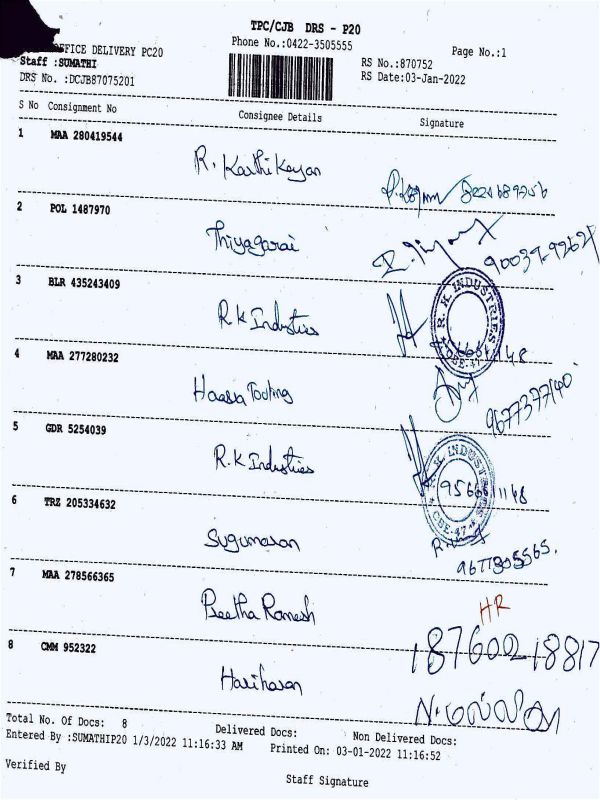 TPC/CJB DRS - P20
OFFICE DELIVERY PC20
Phone No.:0422-3505555
Page No.:1
Staff :SUMATHI
RS No.:870752
DRS No. :DCJB87075201
RS Date:03-Jan-2022
S No Consignment No Consignee Details Signature
1 MAA 280419544
R. Karthikeyan
2 POL 1487970
Thiyagarai
3 BLR 435243409
R K Industries
R. K. INDUSTRIES
4 MAA 277280232
Haasa Tooling
9677377140
5 GDR 5254039
R.K Industries
R. K. INDUSTRIES
CBE-47
9566661148
6 TRZ 205334632
Sugumaran
9677305565.
7 MAA 278566365
Preetha Ramesh
HR
8 CMM 952322
Hariharan
Total No. Of Docs: 8 Delivered Docs: Non Delivered Docs:
Entered By :SUMATHIP20 1/3/2022 11:16:33 AM Printed On: 03-01-2022 11:16:52
Verified By
Staff Signature